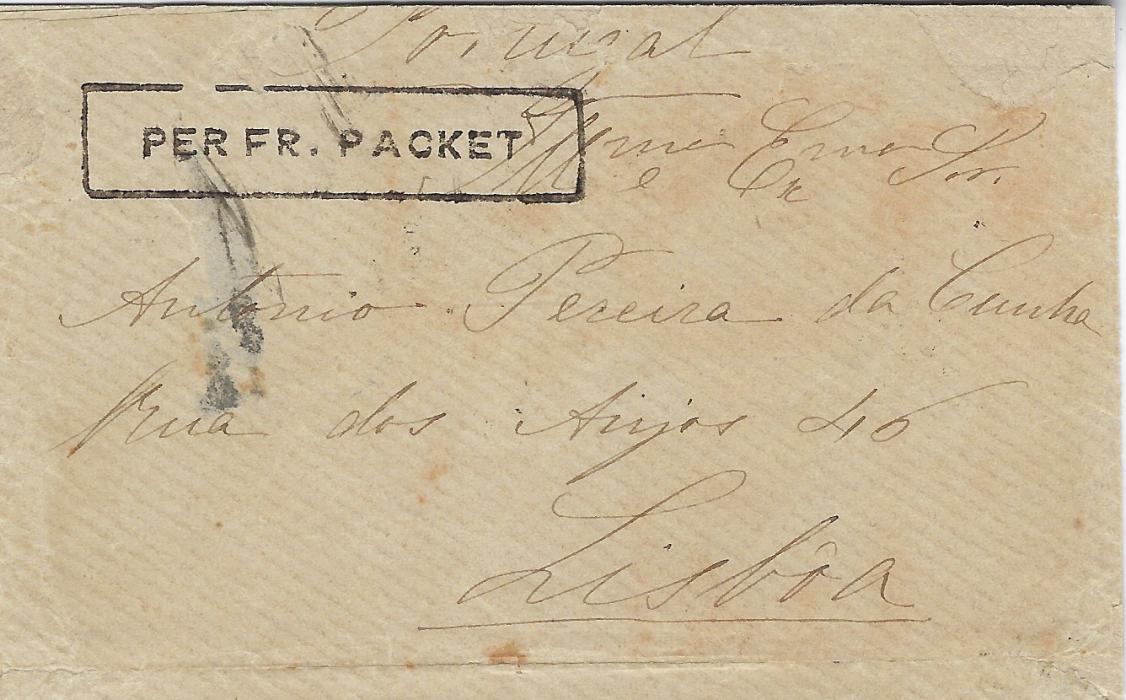 Portugal
PER FR. PACKET
Illmo e Exmo Snr.
Antonio Pereira da Cunha
Rua dos Anjos 46
Lisbôa